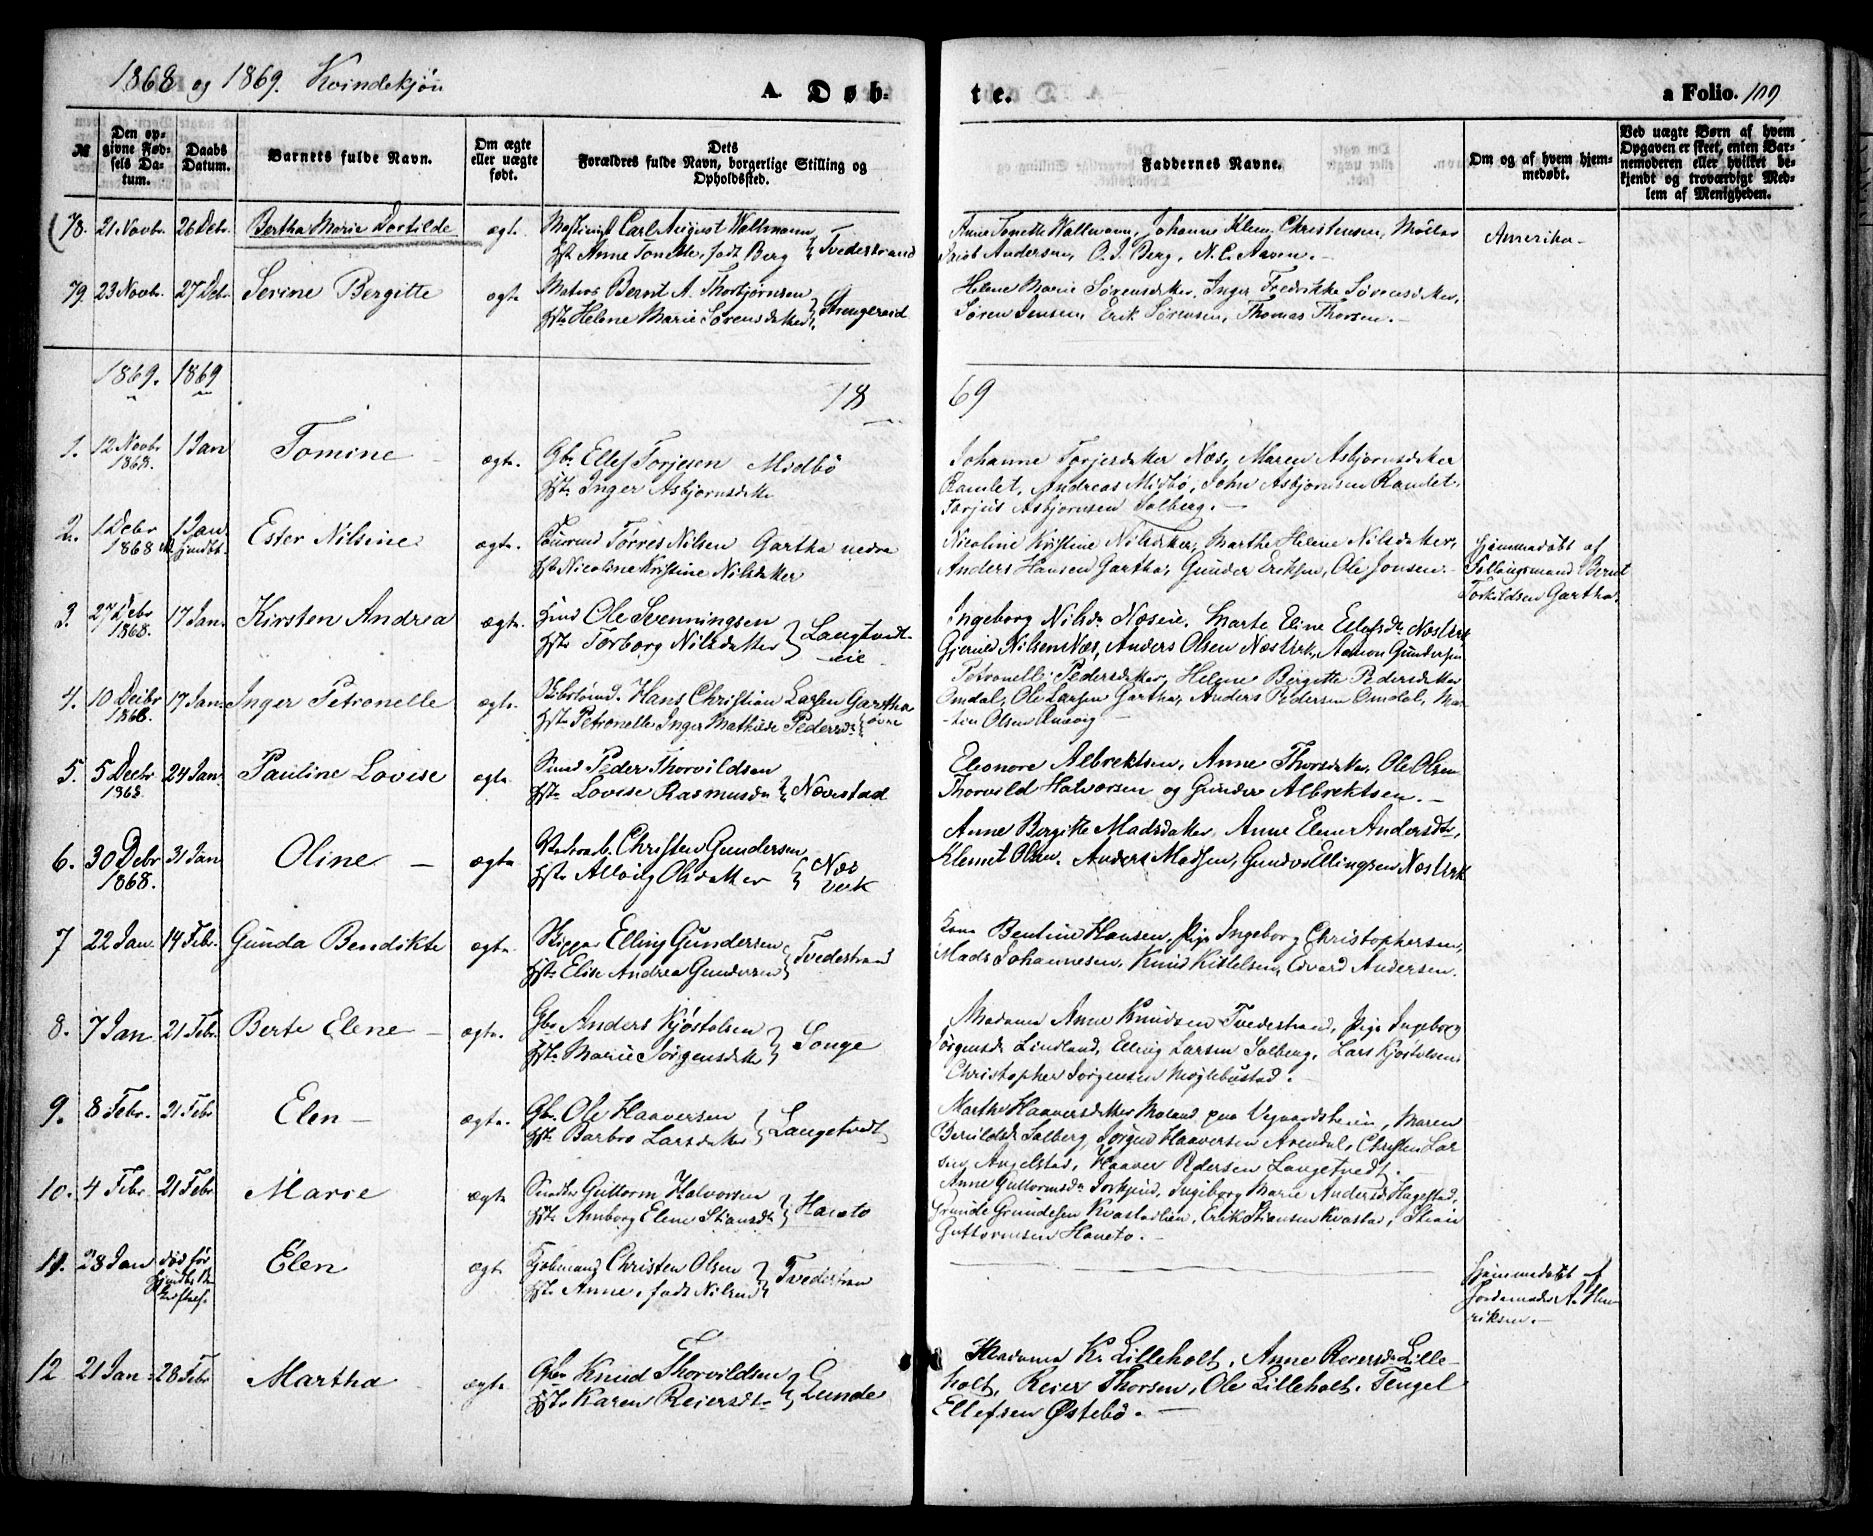 1868 og 1869. Kvindekjøn
A. Døb-
te.
a Folio. 109
№
Den opgivne Fødsels Datum.
Daabs Datum.
Barnets fulde Navn.
Om ægte eller uægte født.
Dets Forældres fulde Navn, borgerlige Stilling og Opholdssted.
Faddernes Navne.
Om og af hvem hjemmedøbt.
Ved uægte Børn af hvem Opgaven er skeet, enten Barnemoderen eller hvilket bekjendt og troværdigt Medlem af Menigheden.
78. 21 Novbr. 26 Debr. Bertha Marie Dortilde ægte Carl August Wallmann
Anne Tonette, født Berg Tvedestrand
Anne Tonette Wallmann, Johanne Klem Christensen,
Andersen, O. J. Berg, N. C. Aasen.
Amerika
79. 23 Novb. 27 Debr Serine Bergitte ægte Matros Bernt A. Thorbjørnsen
Hst. Helene Marie Sørensdatter
Helene Marie Sørensdatter, Inger Fredrikke Sørensdatter,
Søren Jensen, Erik Sørensen, Thomas Thorsen.
1869. 1869
78
69
1. 12 Novbr 1868. 1 Jan Tomine ægte. Gbr. Ellef Torjesen Midbö
Hst. Inger Asbjørnsdatter
Johanne Torjesdatter Næs, Maren Asbjørnsdatter
Ramlet, Andreas Midbö, John Asbjørnsen Ramlet,
Torjus Asbjørnsen Solberg.
2. 1 Debr 1868 1 Jan Ester Nilsine ægte. Tørres Nilsen Gartha nedre
Hst. Nicoline Kristine Nilsdatter
Nicoline Kristine Nilsdatter, Marthe Helene Nilsdatter,
Anders Hansen Gartha, Gunder Eriksen, Ole Jonsen.
Hjemmedøbt af
Bernt
Torkildsen Gartha.
3. 27 Debr 1868. 17 Jan. Kirsten Andrea ægte. Ole Svenningsen
Hst. Torborg Nilsdatter Langtvedt
eie
Ingeborg Nilsd. Næseie, Marte Eline Ellefsdr
Gjeruld Nilsen Næs, Anders Olsen Næs Verk, Aanon Gundersen
4. 10 Debr 1868. 17 Jan. Inger Petronelle ægte. Hans Christian Larsen Gartha
øvre
Hst. Petronelle Inger Mathilde Pedersdr
Petronelle Pedersdatter, Helene Bergitte Pedersdatter
Omdal, Ole Larsen Gartha, Anders Pedersen Omdal, Mar-
tin Olsen
5. 5 Decbr 1868. 24 Jan. Pauline Lovise ægte Peder Thorvildsen
Hst. Lovise Rasmusdr Nævestad
Eleonore Albrektsen, Anne Thorsdatter, Ole Olsen
Thorvild Halvorsen og Gunder Albrektsen.
6. 30 Debr 1868. 31 Jan Oline ægte Christen Gundersen
Hst. Olsdatter Næs
verk
Anne Bergitte Madsdatter, Anne Elene Andersdtr,
Klemet Olsen, Anders Madsen, Ellingsen Næs Verk
7 22 Jan. 14 Febr. Gunda Bendikte ægte. Skipper Elling Gundersen
Hst. Elise Andrea Gundersen Tvedestrand
Kone Bentine Hansen, Pige Ingeborg Christophersen,
Mads Johannesen, Knud Kittelsen, Edvard Andersen.
8. 7 Jan 21 Febr. Berte Elene ægte. Gbr Anders Kjøstolsen
Hst. Marie Jørgensdatter Songe
Madame Anne Knudsen Tvedestrand, Pige Ingeborg
Jørgensdr Lindland, Elling Larsen Solberg, Lars Kjøstolsen
Christopher Jørgensen Møglebustad.
9. 8 Febr. 21 Febr Elen ægte. Gbr. Ole Haaversen
Hst. Barbro Larsdatter Langetvedt
Marthe Haaversdatter Moland paa Vegaardsheien, Maren
Beruldsdr Solberg, Jørgen Haaversen Arendal, Christen Lar-
sen Angelstad, Haaver Pedersen Langetvedt.
10. 4 Febr 21 Febr Marie ægte Guttorm Halvorsen
Hst. Anborg Elene Stiansdr Haneto
Anne Guttormsdr, Ingeborg Marie Andersdr Hagestad,
Grunde Grundesen Kvastadlien, Erik Stiansen Kvastad, Stian
Guttormsen Haneto.
11. 28 Jan død før Elen ægte Christen Olsen
Hst. Anne, født Nilsen Tvedestrand
Hjemmedøbt af
Jordemoder A. Hen-
riksen.
12 21 Jan 28 Febr Martha ægte Gbr Knud Thorvildsen
Hst. Karen Reiersdr Lunde
Madame K. Lilleholt, Anne Reiersdr Lille-
holt, Reier Thorsen, Ole Lilleholt, Tengel
Ellefsen Østebö.